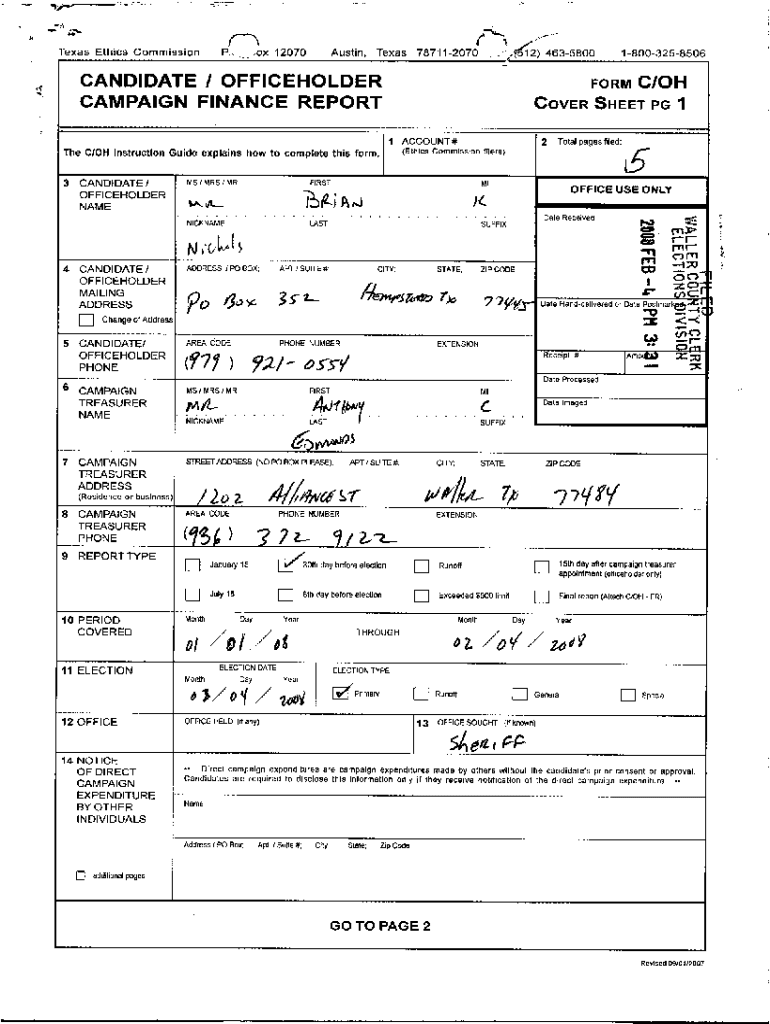 Texas Ethics Commission P. ox 12070 Austin, Texas 78711-2070 (512) 463-5800 1-800-325-8506
CANDIDATE / OFFICEHOLDER
CAMPAIGN FINANCE REPORT
FORM C/OH
COVER SHEET PG 1
The C/OH Instruction Guide explains how to complete this form.
1 ACCOUNT #
(Ethics Commission filers)
2 Total pages filed:
15
3 CANDIDATE / OFFICEHOLDER NAME
MS / MRS / MR FIRST MI
MR BRIAN K
NICKNAME LAST SUFFIX
Nichols
OFFICE USE ONLY
Date Received
FILED
WALLER COUNTY CLERK
ELECTIONS DIVISION
2008 FEB -4 PM 3:31
Date Hand-delivered or Date Postmarked
Receipt # Amount
Date Processed
Date Imaged
4 CANDIDATE / OFFICEHOLDER MAILING ADDRESS
Change of Address
ADDRESS / PO BOX; APT / SUITE #; CITY; STATE; ZIP CODE
PO Box 352 Hempstead Tx 77445
5 CANDIDATE/ OFFICEHOLDER PHONE
AREA CODE PHONE NUMBER EXTENSION
(979) 921-0554
6 CAMPAIGN TREASURER NAME
MS / MRS / MR FIRST MI
MR ANTHONY C
NICKNAME LAST SUFFIX
Edmunds
7 CAMPAIGN TREASURER ADDRESS
(Residence or business)
STREET ADDRESS (NO PO BOX PLEASE); APT / SUITE #; CITY; STATE; ZIP CODE
1202 Alliance ST Waller Tx 77484
8 CAMPAIGN TREASURER PHONE
AREA CODE PHONE NUMBER EXTENSION
(936) 372 9122
9 REPORT TYPE
January 15 30th day before election Runoff 15th day after campaign treasurer appointment (officeholder only)
July 15 8th day before election Exceeded $500 limit Final report (Attach C/OH - FR)
10 PERIOD COVERED
Month Day Year THROUGH Month Day Year
01 / 01 / 08 02 / 04 / 2008
11 ELECTION
ELECTION DATE
Month Day Year
03 / 04 / 2008
ELECTION TYPE
Primary Runoff General Special
12 OFFICE
OFFICE HELD (if any)
13 OFFICE SOUGHT (if known)
SHERIFF
14 NOTICE OF DIRECT CAMPAIGN EXPENDITURE BY OTHER INDIVIDUALS
additional pages
** Direct campaign expenditures are campaign expenditures made by others without the candidate's prior consent or approval.
Candidates are required to disclose this information only if they receive notification of the direct campaign expenditure. **
Name
Address / PO Box; Apt. / Suite #; City State; Zip Code
GO TO PAGE 2
Revised 09/01/2007